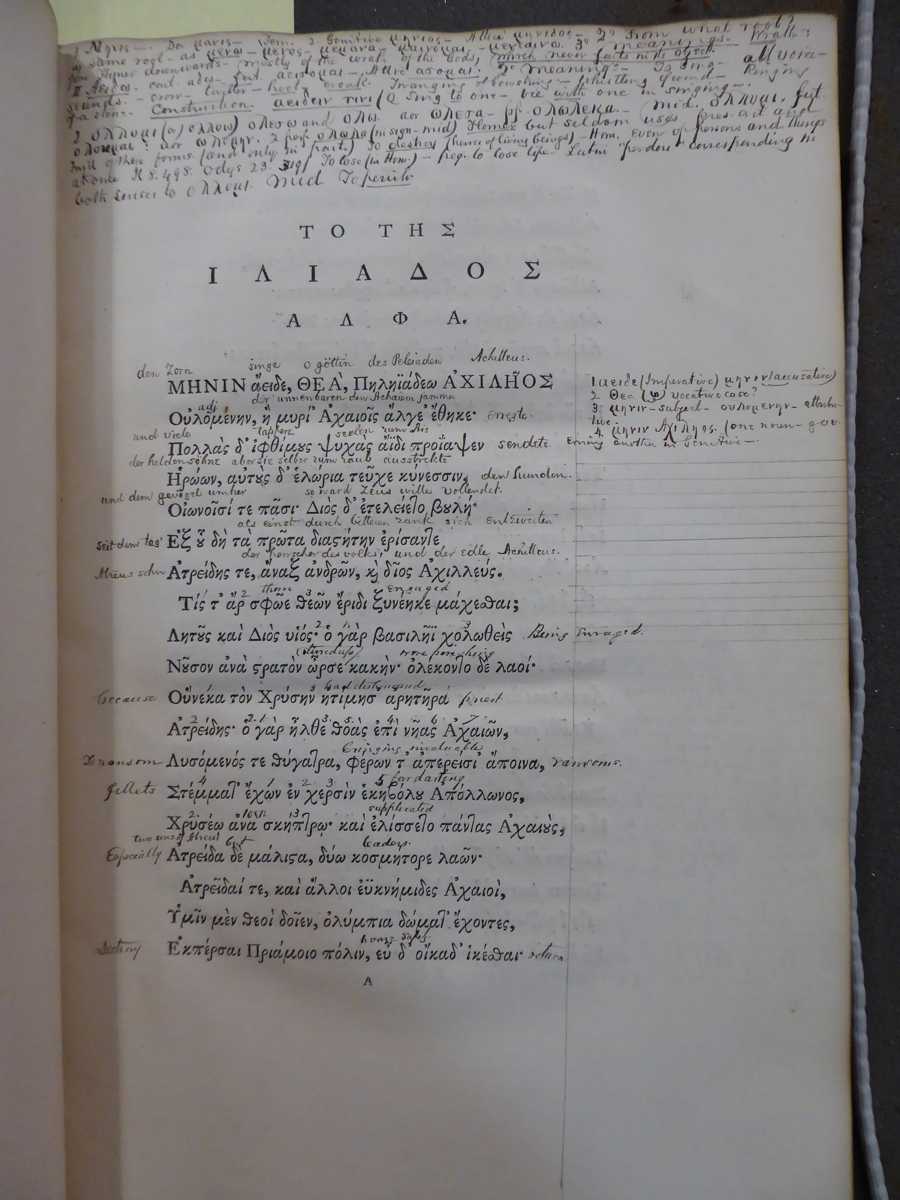 1 Μηνις — Dor μανις — Nom. 2 Genitive μηνιος — Attice μηνιδος — 2° From what root?
of same root — as μενω — μενος, μεμονα, μαινομαι, 3° meaning. Wrath:
from Homer downwards — mostly of the wrath of the Gods,
II Αειδω. fut. αεισομαι. Attic ασομαι. 3° Meaning — To Sing — all vocal
sounds — crow — twanging of bowstring — whistling of wind — Ringing
of a stone. Construction αειδειν τινι (2 Sing to one — vie with one in singing —
2 ολλυμι (or ολλυω) ολεσω and ολω. aor ωλεσα — pf. ολωλεκα. — mid. ολλυμαι. fut
ολουμαι: aor ωλομην. 2 perf. ολωλα (in sign. mid) Homer but seldom uses pres. act and
mid of these forms (and only in part.) To destroy (hence of living beings) — Hom. even of persons and things
at once Il 8. 498. Odys 23. 319) To lose (in Hom.) — freq. to lose life — Latin "perdere" corresponding in
both senses to ολλυμι. Mid To perish
ΤΟ ΤΗΣ
ΙΛΙΑΔΟΣ
ΑΛΦΑ.
den Zorn singe o göttin des Peleiaden Achilleus.
ΜΗΝΙΝ ἄειδε, ΘΕᾺ, Πηληϊάδεω ἈΧΙΛΗ͂ΟΣ
adj. der unnenbaren den Achaiern jammer
Οὐλομένην, ἣ μυρί' Ἀχαιοῖς ἄλγε' ἔθηκε· erregte
und viele tapfere seelen zum Ais
Πολλὰς δ' ἰφθίμους ψυχὰς ἄϊδι προΐαψεν sendete
der heldensöhne aber sie selber zum raub ausstrekte
Ἡρώων, αὐτοὺς δ' ἑλώρια τεῦχε κύνεσσιν, den hunden.
und dem gevögel umher so ward Zeus wille vollendet.
Οἰωνοῖσί τε πᾶσι· Διὸς δ' ἐτελείετο βουλή·
als einst durch bitteren zank sich entzweiten
Seit dem tag Ἐξ οὗ δὴ τὰ πρῶτα διαστήτην ἐρίσαντε
der herrscher des volks, und der edle Achilleus.
Atreus sohn Ἀτρείδης τε, ἄναξ ἀνδρῶν, καὶ δῖος Ἀχιλλεύς.
engaged
Τίς τ' ἄρ σφῶε θεῶν ἔριδι ξυνέηκε μάχεσθαι;
Λητοῦς καὶ Διὸς υἱός· ὁ γὰρ βασιλῆϊ χολωθεὶς Being enraged.
Νοῦσον ἀνὰ στρατὸν ὦρσε κακήν· ὀλέκοντο δὲ λαοί·
because Οὕνεκα τὸν Χρύσην ἠτίμησ' ἀρητῆρα priest
2 1 3 5 4 6
Ἀτρείδης· ὁ γὰρ ἦλθε θοὰς ἐπὶ νῆας Ἀχαιῶν,
Bringing invaluable
To ransom Λυσόμενός τε θύγατρα, φέρων τ' ἀπερείσι' ἄποινα, ransoms.
4 2 3 5 far darting
fillets Στέμματ' ἔχων ἐν χερσὶν ἑκηβόλου Ἀπόλλωνος,
supplicated
Χρυσέῳ ἀνὰ σκήπτρῳ· καὶ ἐλίσσετο πάντας Ἀχαιούς,
leaders.
Especially Ἀτρείδα δὲ μάλιστα, δύω κοσμήτορε λαῶν·
Ἀτρεῖδαί τε, καὶ ἄλλοι ἐϋκνήμιδες Ἀχαιοὶ,
Ὑμῖν μὲν θεοὶ δοῖεν, ὀλύμπια δώματ' ἔχοντες,
destroy Ἐκπέρσαι Πριάμοιο πόλιν, εὖ δ' οἴκαδ' ἱκέσθαι· return
Α
1 αειδε (Imperative) μηνιν (accusative)
2 Θεα vocative case?
3 μηνιν — subject — ουλομενην — attributive —
4. μηνιν Αχιληος. (one noun — governing another in Genitive —